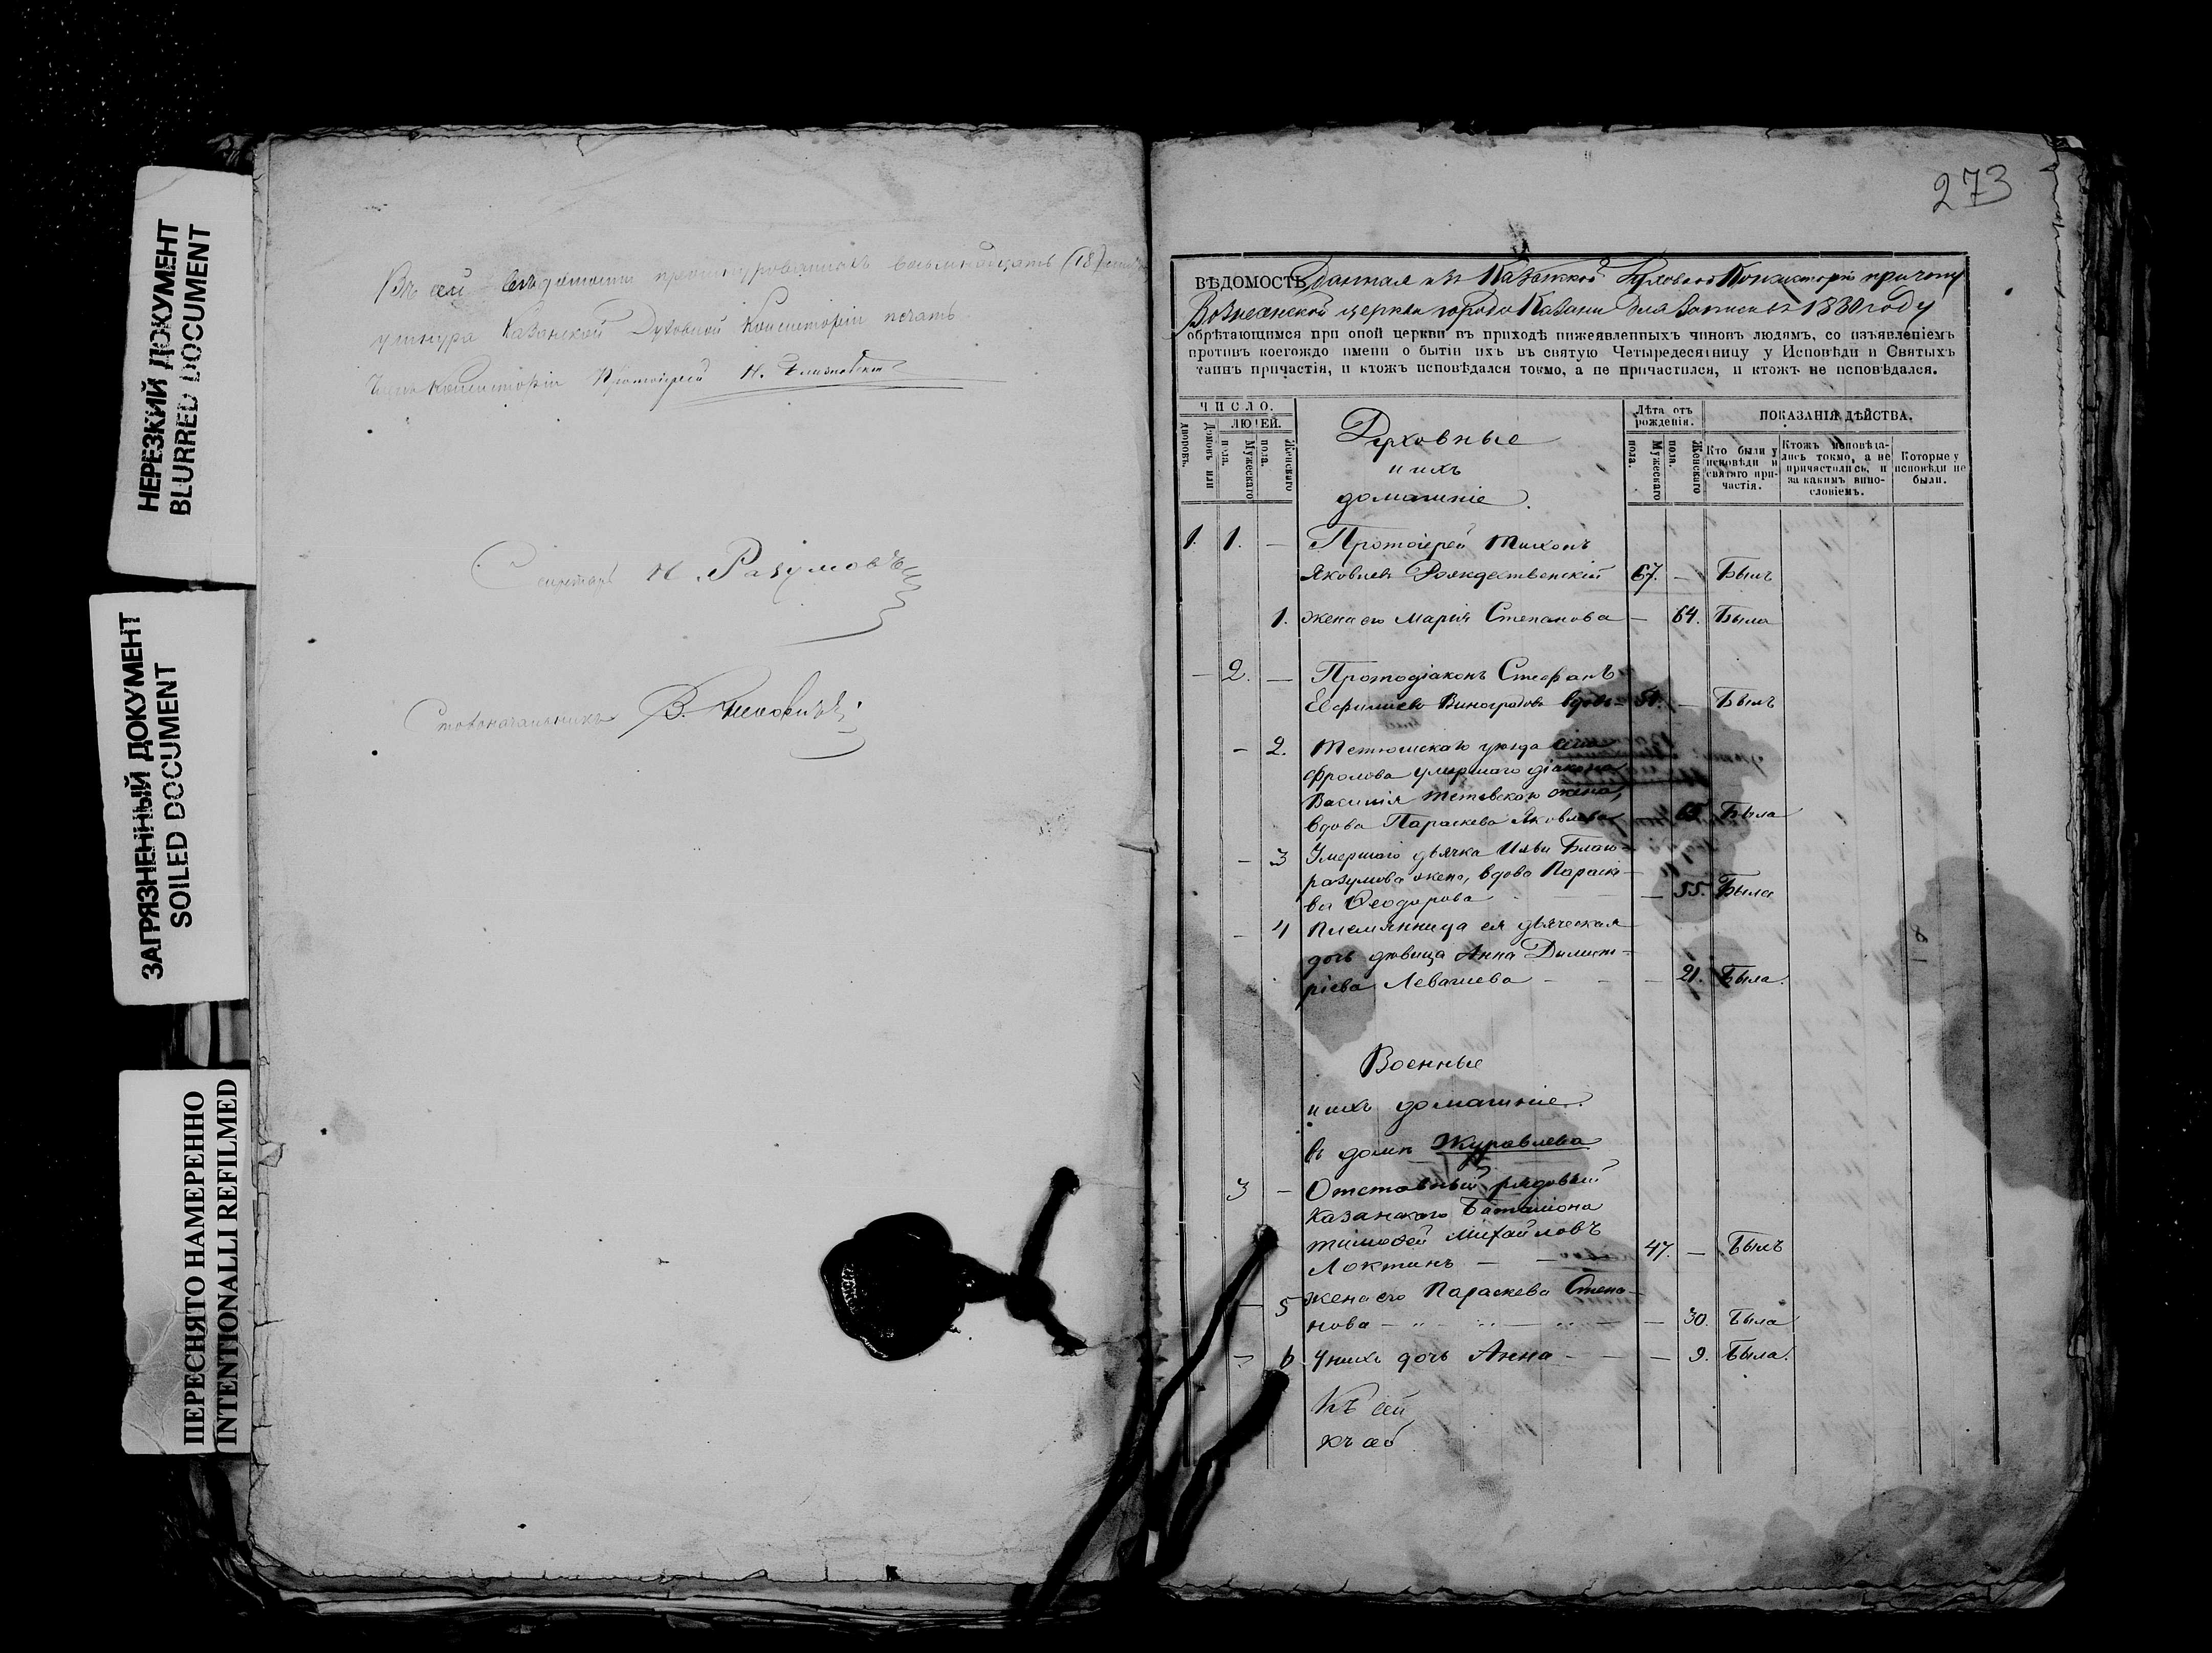 НЕРЕЗКИЙ ДОКУМЕНТ
BLURRED DOCUMENT
ЗАГРЯЗНЕННЫЙ ДОКУМЕНТ
SOILED DOCUMENT
ПЕРЕСНЯТО НАМЕРЕННО
INTENTIONALLI REFILMED
Въ сей вѣдомости прошнурованныхъ восемнадцать (18)
у шнура Казанской Духовной Консисторіи печать.
Членъ Консисторіи Протоіерей
Секретарь Н. Разумовъ
Столоначальникъ В.
273
ВѢДОМОСТЬ Данная изъ Казанской Духовной Консисторіи причту
Вознесенской церкви города Казани для записи въ 1880 году
обрѣтающимся при оной церкви въ приходѣ нижеявленныхъ чиновъ людямъ, со изъявленіемъ
противъ коегождо имени о бытіи ихъ въ святую Четыредесятницу у Исповѣди и Святыхъ
таинъ причастія, и ктожъ исповѣдался токмо, а не причастился, и ктожъ не исповѣдался.
ЧИСЛО.
ЛЮДЕЙ.
Домовъ или дворовъ.
Мужескаго пола.
Женскаго пола.
Духовные
и ихъ
домашніе.
Лѣта отъ рожденія.
Мужескаго пола.
Женскаго пола.
ПОКАЗАНІЯ ДѢЙСТВА.
Кто были у исповѣди и святаго причастія.
Ктожъ исповѣдались токмо, а не причастились, и за какимъ винословіемъ.
Которые у исповѣди не были.
1. 1. — Протоіерей Тихонъ
Яковлевъ Рождественскій 67. — Былъ
1. жена его Марія Степанова — 64. Была
— 2. — Протодіаконъ Стефанъ
Евфиміевъ Виноградовъ вдовъ 51. — Былъ
— 2. Тетюшскаго уѣзда села
Фролова умершаго діакона
Василія Тетевскаго жена,
вдова Параскева Яковлева — 65. Была
— 3 Умершаго дьячка Ильи Благо-
разумова жена, вдова Параске-
ва Ѳеодорова — 55. Была
— 4 Племянница ея дьяческая
дочь дѣвица Анна Димит-
ріева Левашева — — — 21. Была.
Военные
и ихъ домашніе.
въ домѣ Журавлева
3 — Отставный рядовый
Казанскаго Баталіона
Тимоѳей Михайловъ
Локтинъ — 47. — Былъ
— 5 жена его Параскева Степа-
нова — — — 30. Была
— 6 У нихъ дочь Анна — — 9. Была.
Къ сей